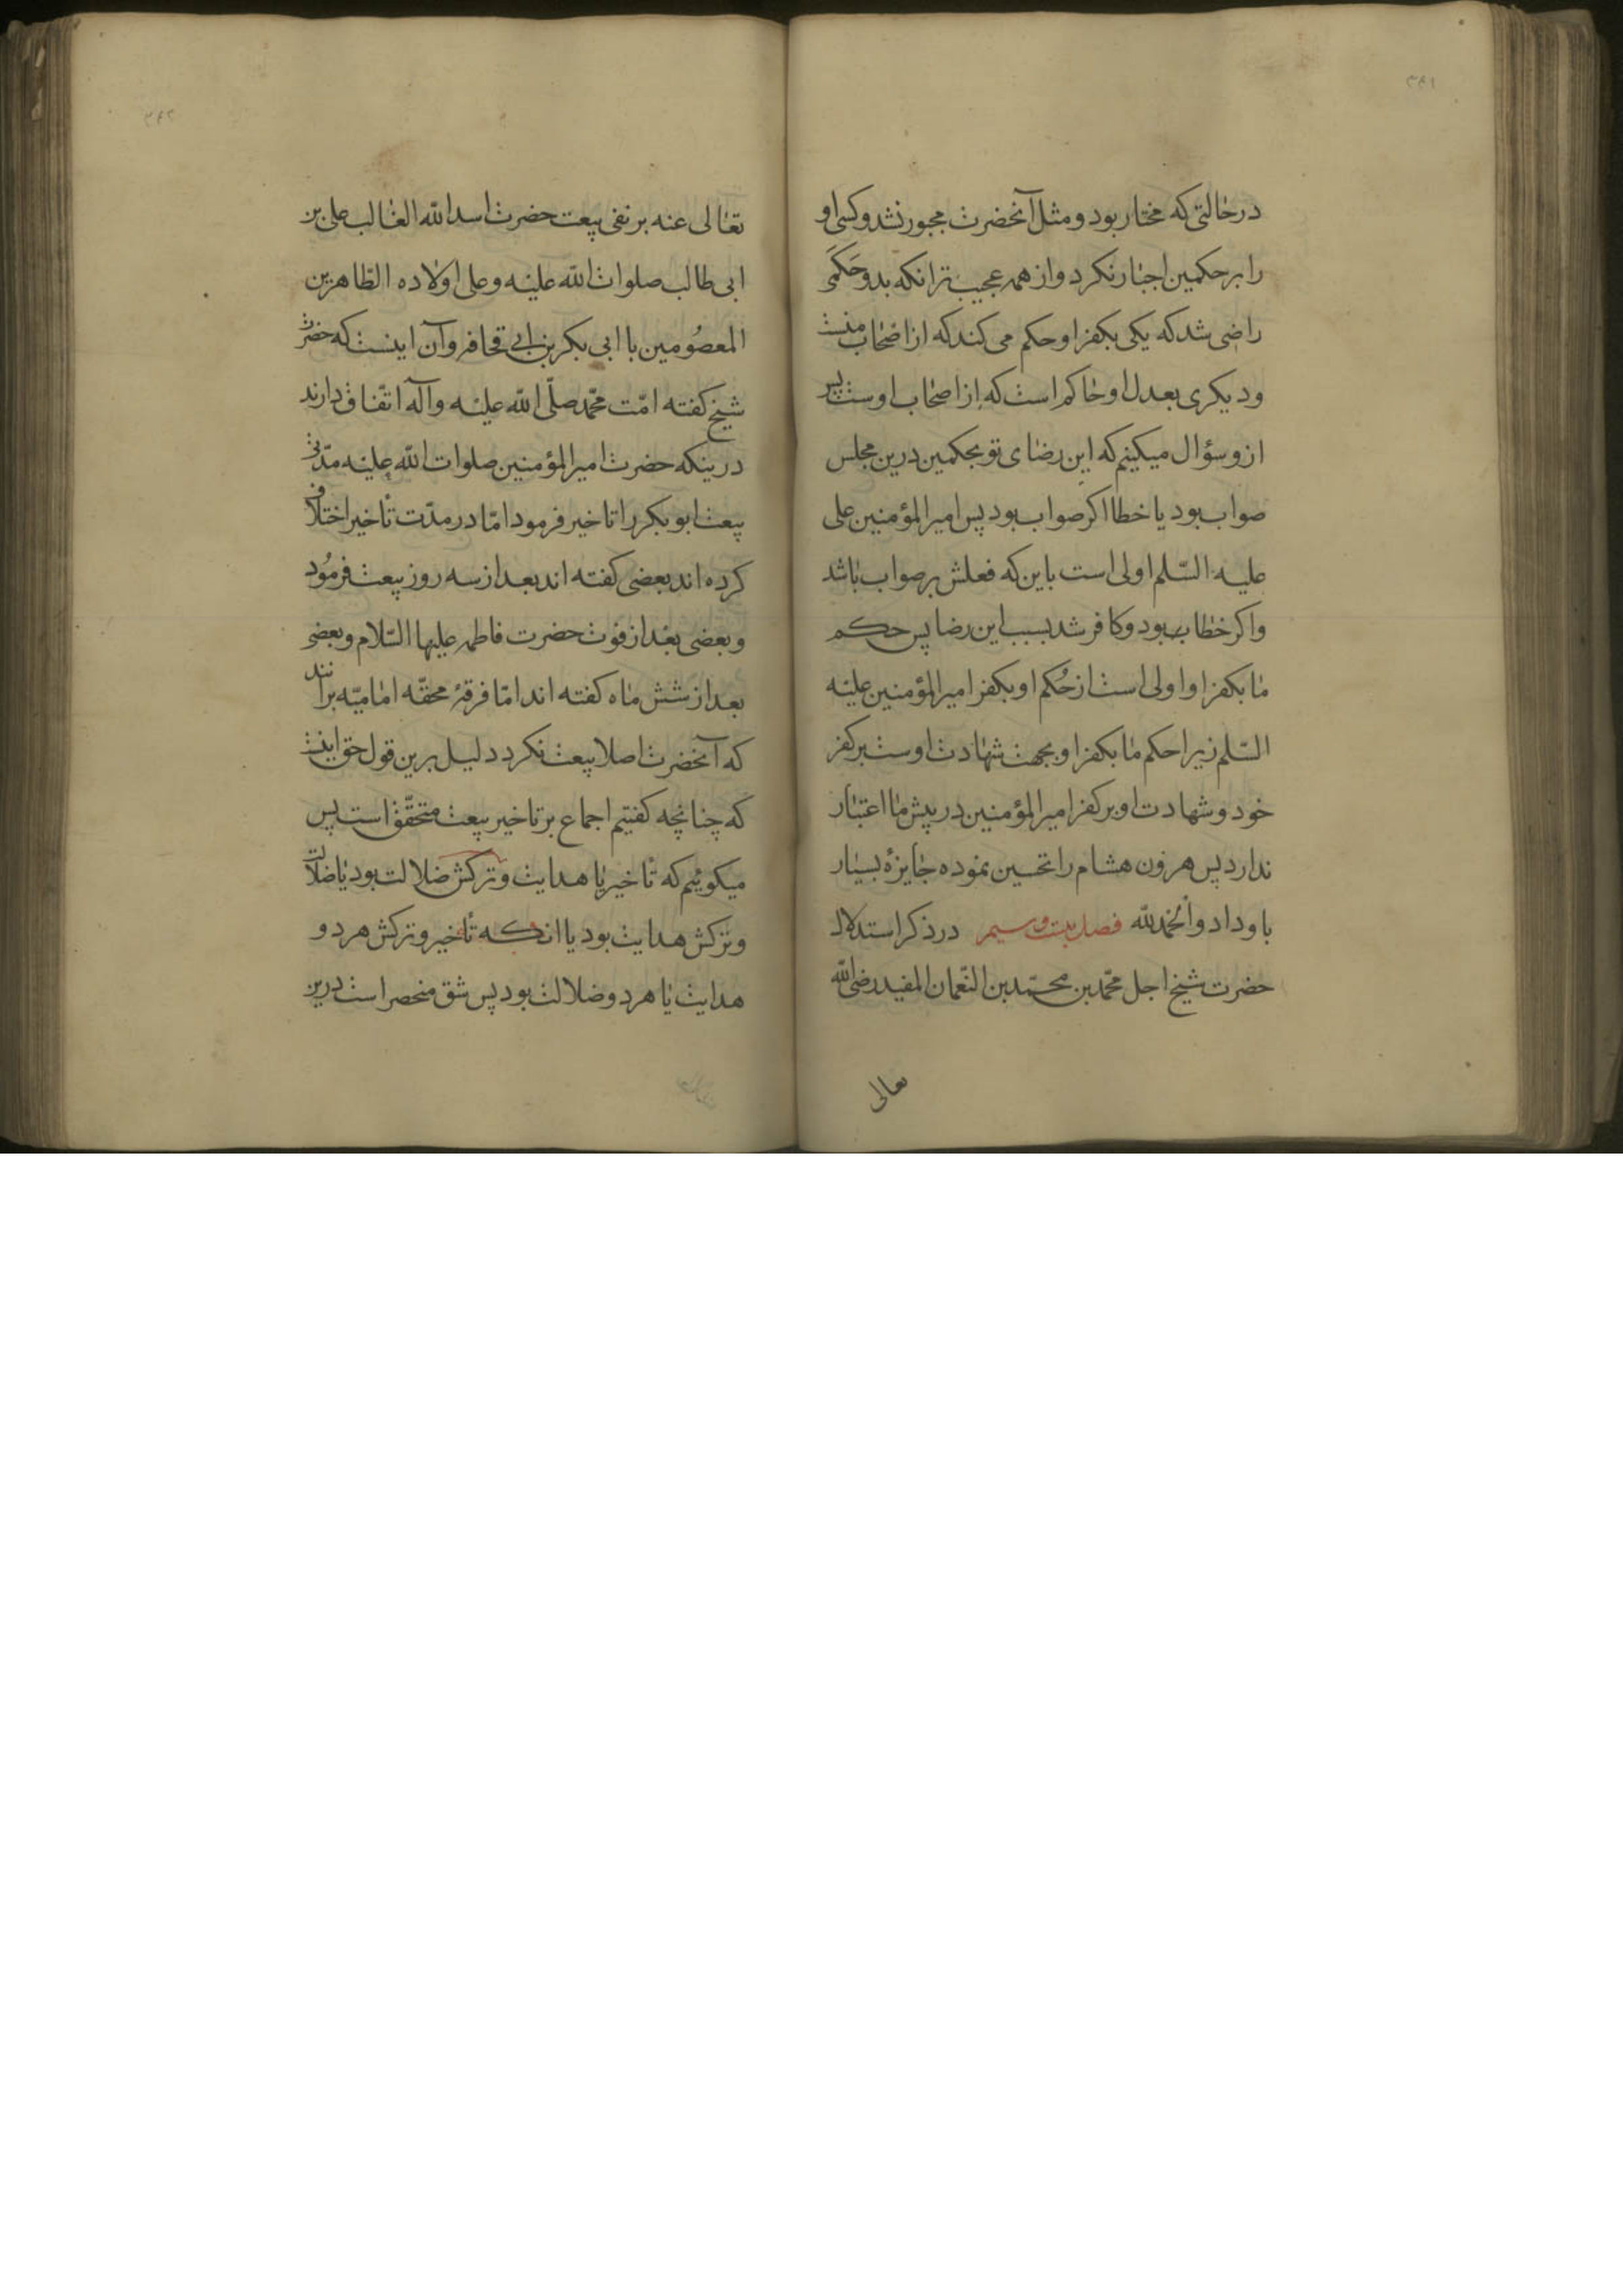 ۳۹۱
درحالتی که مختار بود و مثل آنحضرت مجبور نشد و کسی او
را بر حکمین اجبار نکرد و از همه عجیب تر انکه بدو حَکَمی
راضی شد که یکی بکفر او حکم می کند که از اصحاب منست
و دیکری بعدل او حاکم است که از اصحاب اوست پس
ازو سؤال میکینم که این رضای تو بحکمین درین مجلس
صواب بود یا خطا اکر صواب بود پس امیرالمؤمنین علی
علیه السّلم اولی است باین که فعلش بر صواب باشد
واکر خطا بود و کافر شد بسبب این رضا پس حکم
ما بکفر او اولی است از حُکم او بکفر امیرالمؤمنین علیه
السّلم زیرا حکم ما بکفر او بجهت شهادت اوست بر کفر
خود و شهادت او بر کفر امیرالمؤمنین در پیش ما اعتبار
ندارد پس هرون هشام را تحسین نموده جایزهٔ بسیار
باو داد والحمدلله فصل بیست و سیم در ذکر استدلال
حضرت شیخ اجل محمّد بن محمّد بن النّعمان المفید رضی الله
تعالی
۳۹۲
تعالی عنه بر نفی بیعت حضرت اسدالله الغالب علی بن
ابی طالب صلوات الله علیه وعلی اولاده الطّاهرین
المعصُومین با ابی بکر بن ابی قحافه و آن اینست که حضرت
شیخ کفته امّت محمّد صلّی الله علیه وآله اتّفاق دارند
درینکه حضرت امیرالمؤمنین صلوات الله علیه مدّتی
بیعت ابوبکر را تاخیر فرمود امّا در مدّت تأخیر اختلاف
کرده اند بعضی کفته اند بعد از سه روز بیعت فرمُود
و بعضی بعد از فوت حضرت فاطمه علیها السّلام و بعضی
بعد از شش ماه کفته اند امّا فرقهٔ محقّه امامیّه برانند
که آنحضرت اصلا بیعت نکرد دلیل برین قول حق اینست
که چنانچه کفتیم اجماع بر تاخیر بیعت متحقّق است پس
میکوئیم که تأخیر یا هدایت و ترکش ضلالت بود یا ضلالت
و ترکش هدایت بود یا انکه تأخیر و ترکش هر دو
هدایت یا هر دو ضلالت بود پس شق منحصر است درین